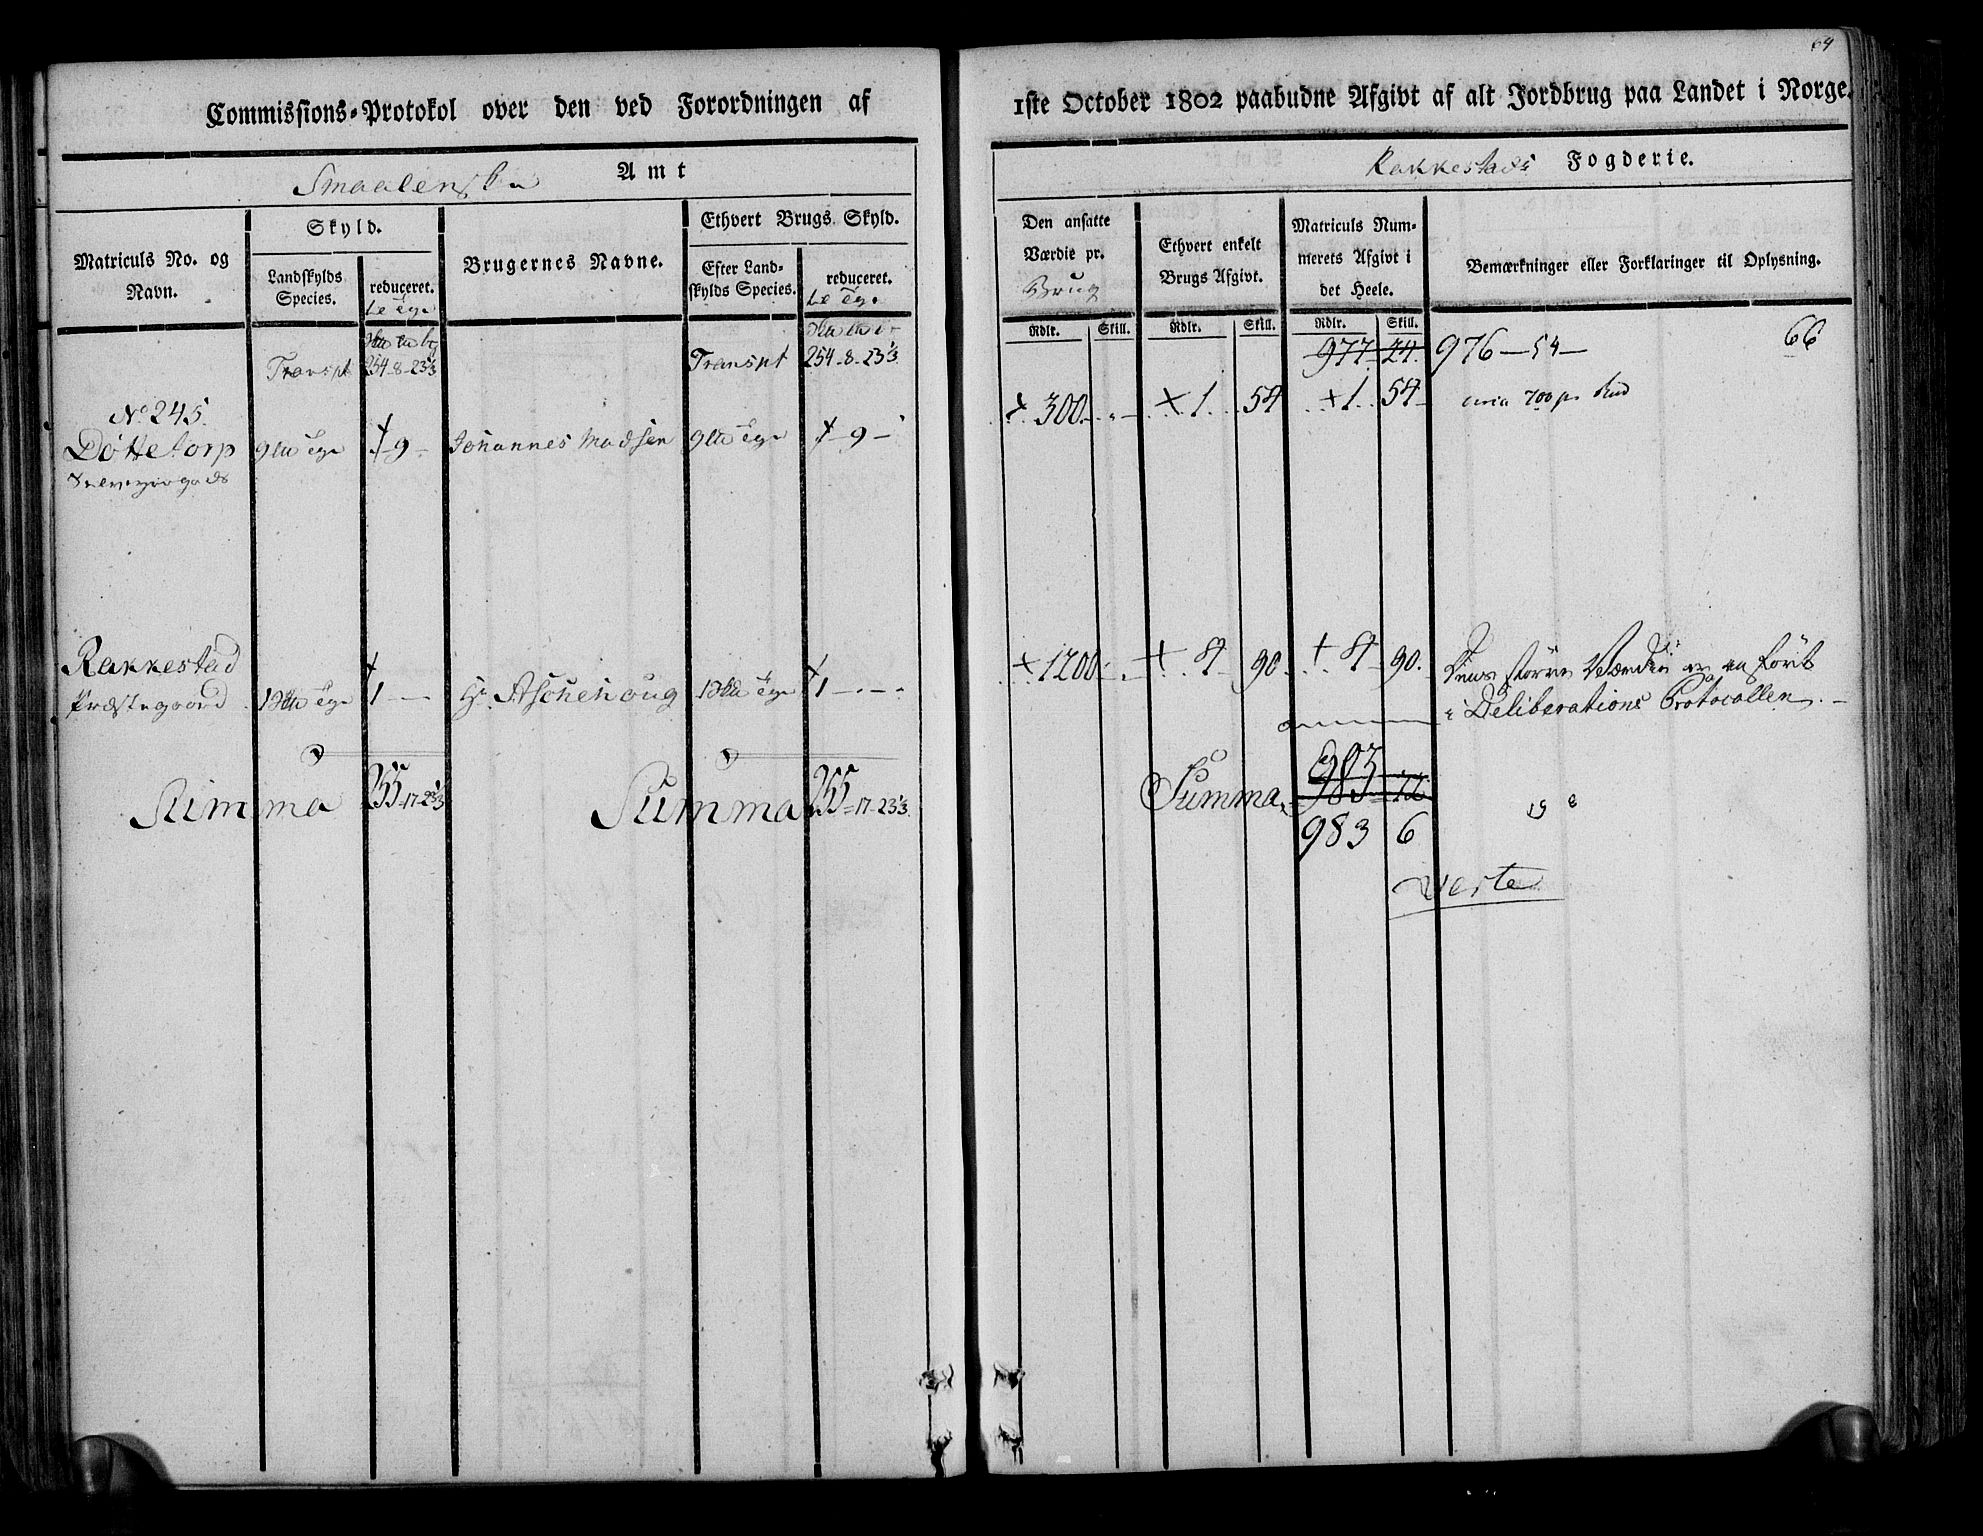 64
Commissions-Protokol over den ved Forordningen af
1ste October 1802 paabudne Afgivt af alt Jordbrug paa Landet i Norge.
Smaalenske Amt
Rakkestads Fogderie.
Matriculs No. og Navn.
Skyld.
Landskylds Species.
reduceret.
Brugernes Navne.
Ethvert Brugs Skyld.
Efter Land-skylds Species.
reduceret.
Den ansatte Værdie pr. Brug
Ethvert enkelt Brugs Afgivt.
Matriculs Num-merets Afgivt i det Heele.
Bemærkninger eller Forklaringer til Oplysning.
Rdlr. Skill. Rdlr. Skill. Rdlr. Skill.
Transpt 254-8-23⅓ Transpt 254-8-23⅓ 977 24. 976-54- 66
No 245.
Döttetorp 9 -9- Johannes Madsen 9 -9- 300 1 54 1 54 circa 700
Rakkestad
Præstegaard 1 1 Hr Aschehoug 1 1 1200 4 90 4 90. Dens större Værdie er an fört
i Deliberations Protocollen.
Summa 255-17-23⅓ Summa 255-17-23⅓ Summa 983 72
983 6
Verte